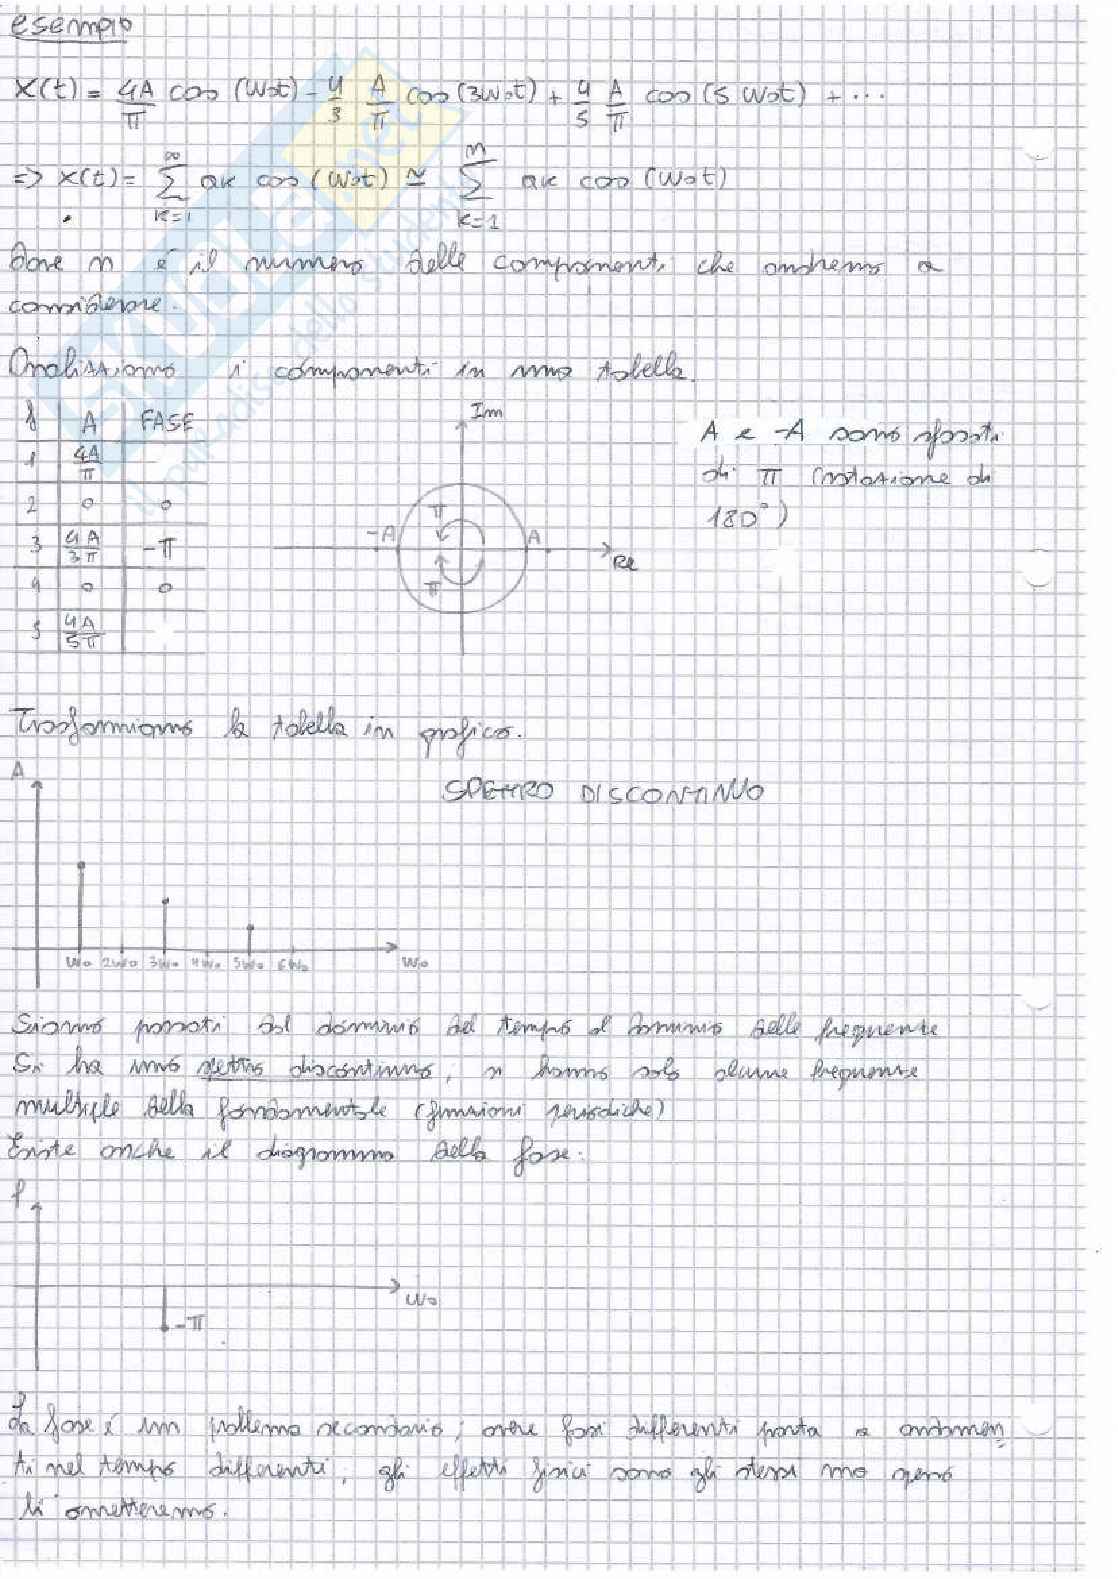 esempio
x(t) = 4A/π cos (ω0t) - 4/3 A/π cos(3ω0t) + 4/5 A/π cos(5 ω0t) + ...
=> x(t) = ∞ Σ k=1 ak cos(ω0t) ≃ n Σ k=1 ak cos (ω0t)
Dove n é il numero delle componenti che andremo a
considerare.
Analizziamo i componenti in una tabella.
f A FASE
1 4A/π
2 0 0
3 4A/3π -π
4 0 0
5 4A/5π
Im
-A π A
π Re
A e -A sono sfasati
di π (rotazione di
180°)
Trasformiamo la tabella in grafico.
A
SPETTRO DISCONTINUO
ω0 2ω0 3ω0 4ω0 5ω0 6ω0 ω0
Siamo passati dal dominio del tempo al dominio delle frequenze
Si ha uno spettro discontinuo, si hanno solo alcune frequenze
multiple della fondamentale (funzioni periodiche)
Esiste anche il diagramma della fase.
φ
ω0
-π
La fase é un problema secondario; avere fasi differenti porta a andamen
ti nel tempo differenti, gli effetti fisici sono gli stessi ma
li ometteremo.
SKUOLA.net